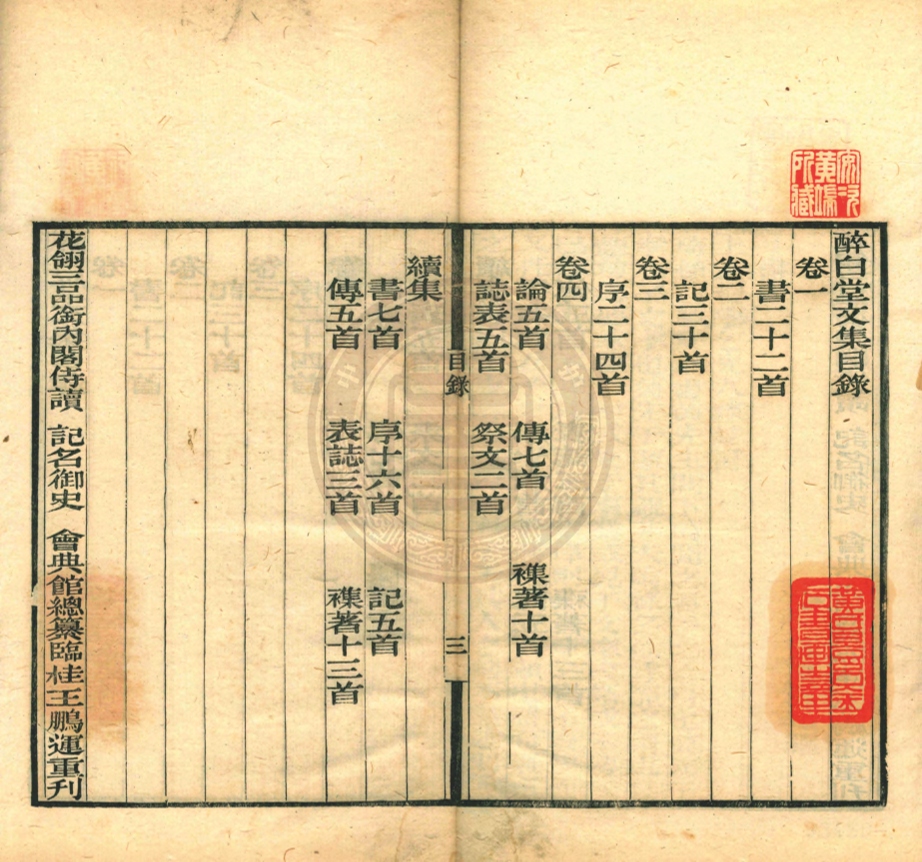 醉白堂文集目錄
卷一
書二十二首
卷二
記三十首
卷三
序二十四首
卷四
論五首 傳七首 襍著十首
誌表五首 祭文二首
目錄 三
續集
書七首 序十六首 記五首
傳五首 表誌三首 襍著十三首
花翎三品銜內閣侍讀 記名御史 會典館總纂臨桂王鵬運重刊